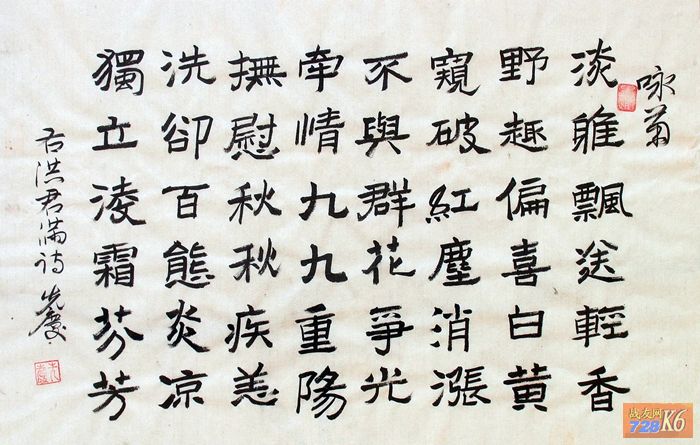 咏菊
淡雅飄送輕香
野趣偏喜白黃
窺破紅塵消漲
不與群花爭光
牽情九九重陽
撫慰秋秋疾恙
洗卻百態炎凉
獨立淩霜芬芳
右洪君滿詩 光慶
战友网
728K6